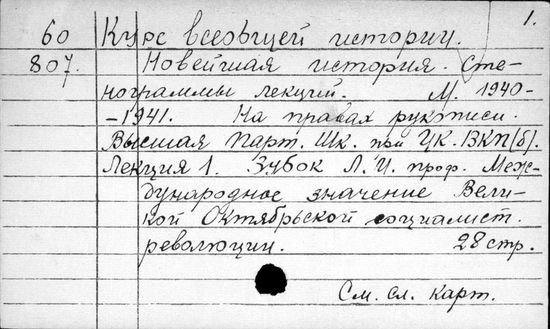 1.
60 Курс всеобщей истории.
807. Новейшая история. Сте-
нограммы лекций. М. 1940-
-1941. На правах рукописи.
Высшая Парт. Шк. при ЦК. ВКП(б).
Лекция 1. Зубок Л. И. проф. Меж-
дународное значение Вели-
кой Октябрьской социалист.
революции. 28 стр.
См. сл. карт.